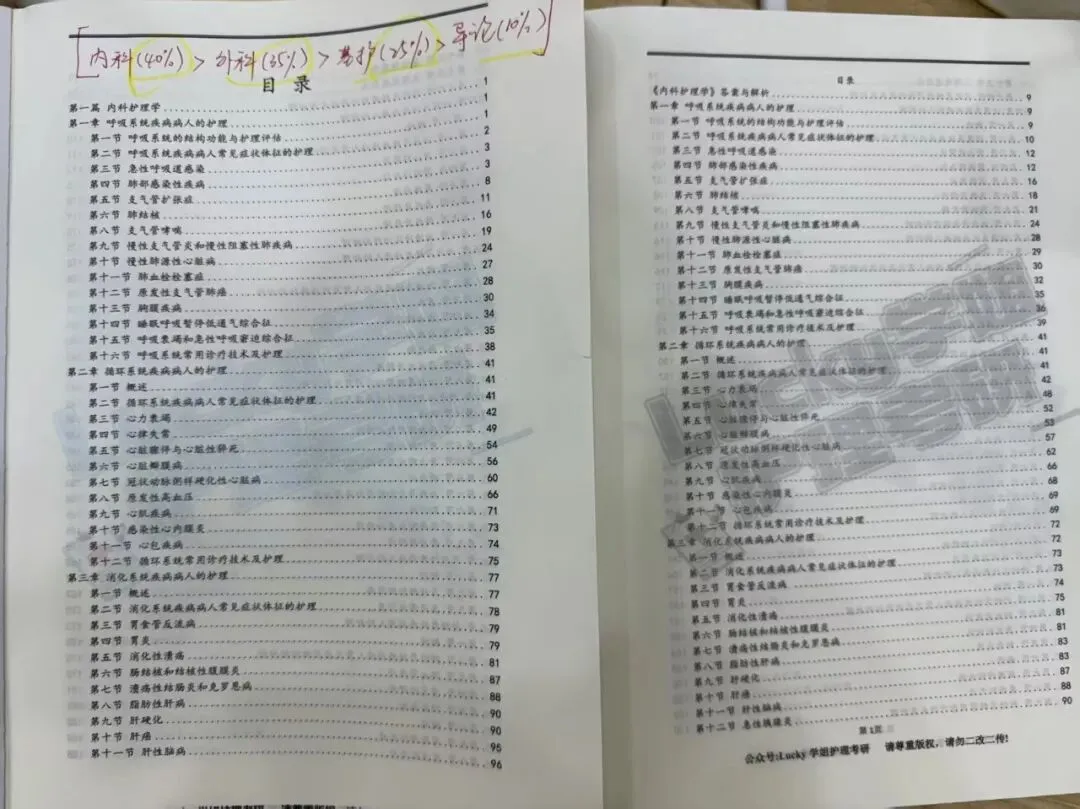 [内科(40%) > 外科(35%) > 基护(25%) > 导论(10%)]
目 录
第一篇 内科护理学 1
第一章 呼吸系统疾病病人的护理 1
第一节 呼吸系统的结构功能与护理评估 1
第二节 呼吸系统疾病病人常见症状体征的护理 2
第三节 急性呼吸道感染 3
第四节 肺部感染性疾病 3
第五节 支气管扩张症 8
第六节 肺结核 11
第八节 支气管哮喘 16
第九节 慢性支气管炎和慢性阻塞性肺疾病 19
第十节 慢性肺源性心脏病 24
第十一节 肺血栓栓塞症 27
第十二节 原发性支气管肺癌 28
第十三节 胸膜疾病 30
第十四节 睡眠呼吸暂停低通气综合征 34
第十五节 呼吸衰竭和急性呼吸窘迫综合征 35
第十六节 呼吸系统常用诊疗技术及护理 38
第二章 循环系统疾病病人的护理 41
第一节 概述 41
第二节 循环系统疾病病人常见症状体征的护理 41
第三节 心力衰竭 42
第四节 心律失常 49
第五节 心脏骤停与心脏性猝死 54
第六节 心脏瓣膜病 56
第七节 冠状动脉粥样硬化性心脏病 60
第八节 原发性高血压 66
第九节 心肌疾病 71
第十节 感染性心内膜炎 73
第十一节 心包疾病 74
第十二节 循环系统常用诊疗技术及护理 75
第三章 消化系统疾病病人的护理 77
第一节 概述 77
第二节 消化系统疾病病人常见症状体征的护理 78
第三节 胃食管反流病 79
第四节 胃炎 79
第五节 消化性溃疡 81
第六节 肠结核和结核性腹膜炎 87
第七节 溃疡性结肠炎和克罗恩病 88
第八节 脂肪性肝病 90
第九节 肝硬化 90
第十节 肝癌 95
第十一节 肝性脑病 96
目录
《内科护理学》答案与解析 9
第一章 呼吸系统疾病病人的护理 9
第一节 呼吸系统的结构功能与护理评估 9
第二节 呼吸系统疾病病人常见症状体征的护理 10
第三节 急性呼吸道感染 12
第四节 肺部感染性疾病 12
第五节 支气管扩张症 16
第六节 肺结核 18
第八节 支气管哮喘 21
第九节 慢性支气管炎和慢性阻塞性肺疾病 24
第十节 慢性肺源性心脏病 28
第十一节 肺血栓栓塞症 29
第十二节 原发性支气管肺癌 30
第十三节 胸膜疾病 32
第十四节 睡眠呼吸暂停低通气综合征 35
第十五节 呼吸衰竭和急性呼吸窘迫综合征 36
第十六节 呼吸系统常用诊疗技术及护理 39
第二章 循环系统疾病病人的护理 41
第一节 概述 41
第二节 循环系统疾病病人常见症状体征的护理 41
第三节 心力衰竭 42
第四节 心律失常 48
第五节 心脏骤停与心脏性猝死 52
第六节 心脏瓣膜病 53
第七节 冠状动脉粥样硬化性心脏病 57
第八节 原发性高血压 62
第九节 心肌疾病 66
第十节 感染性心内膜炎 68
第十一节 心包疾病 69
第十二节 循环系统常用诊疗技术及护理 69
第三章 消化系统疾病病人的护理 72
第一节 概述 72
第二节 消化系统疾病病人常见症状体征的护理 73
第三节 胃食管反流病 73
第四节 胃炎 74
第五节 消化性溃疡 75
第六节 肠结核和结核性腹膜炎 81
第七节 溃疡性结肠炎和克罗恩病 81
第八节 脂肪性肝病 83
第九节 肝硬化 83
第十节 肝癌 87
第十一节 肝性脑病 88
第十二节 急性胰腺炎 90
第 1页
公众号:Lucky 学姐护理考研 请尊重版权,请勿二改二传!
Lucky学姐
护理考研